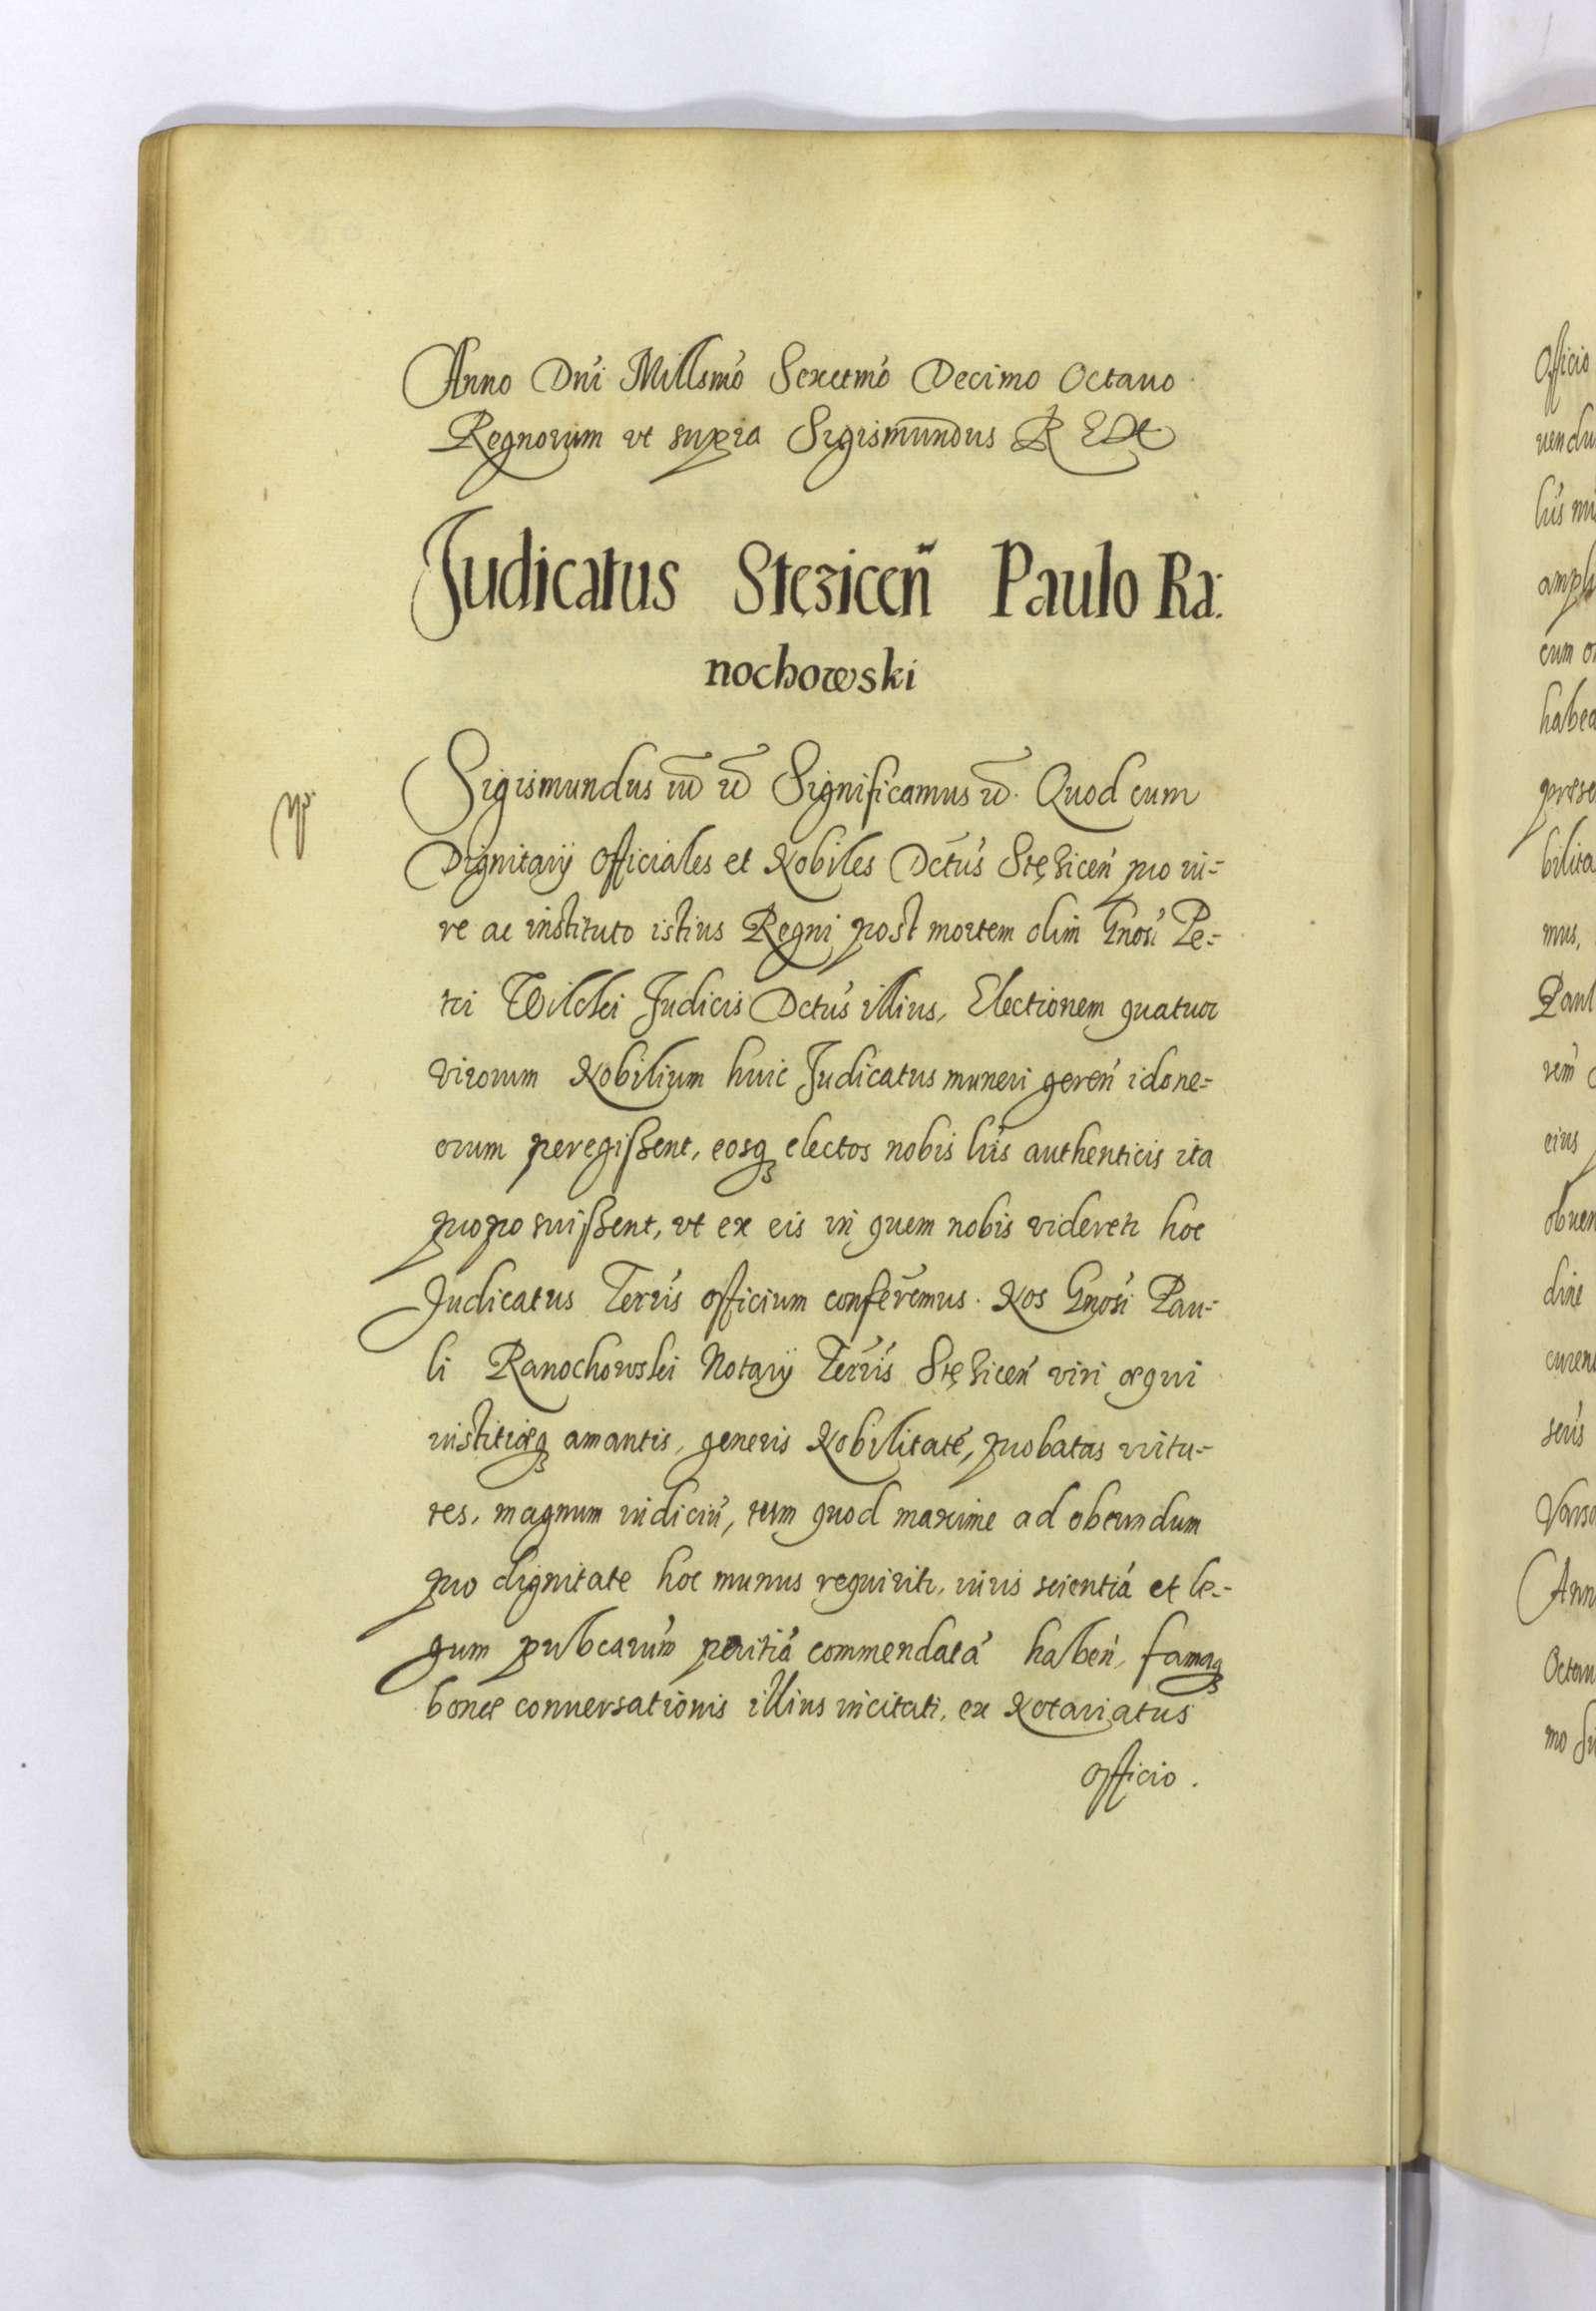 Anno Dńi Millsmó Sexctmó Decimo Octauo
Regnorum vt supra Sigismundus R
Judicatus Stęziceñ Paulo Ra:
nochowski
Sigismundus Significamus Quod cum
Dignitarÿ officiales et Nobiles Dctús Stęziceń pro iu-
re ac instituto istius Regni post mortem olim Gnosi Pe-
tri Wilcki Judicis Dctús illius, Electionem quatuor
virorum Nobilium huic Judicatus muneri gereń idone-
orum peregißent, eosq electos nobis lris authenticis ita
proposuißent, vt ex eis in quem nobis videretr hoc
Judicatus Terris officium conferemus. Nos Gnosi Pau-
li Ranochowski Notarÿ Terris Stęziceń viri æqui
iustitiæq amantis, generis Nobilitaté, probatas virtu-
tes, magnum indiciú, tum quod maxime ad obeundum
pro dignitate hoc munus requiritr, iuris scientiá et le-
gum pubcarúm peritiá commendatá habeń, famaq
bonæ conuersationis illius incitati, ex Notariatus
officio.
officio
uendu
amp
cum o
habea
præse
bilita
mus,
Paul
eius
obuen
dine
Ann
Octau